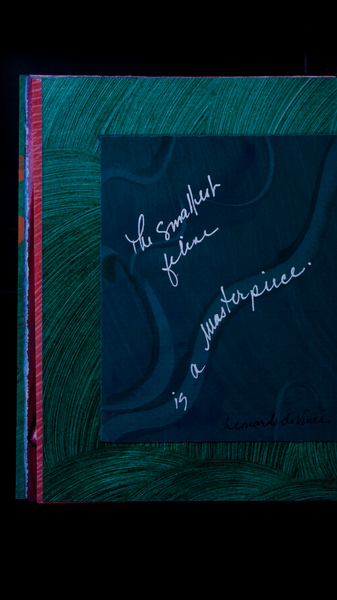 The smallest
feline
is a masterpiece.
Leonardo da Vinci